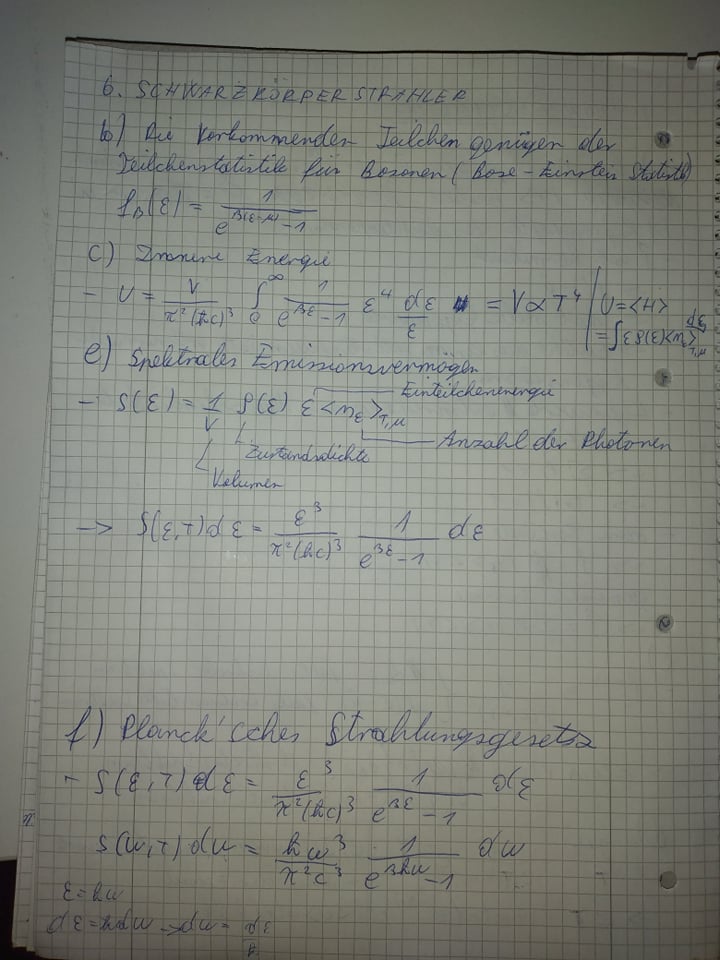 6. SCHWARZKÖRPERSTRAHLER
b) Die vorkommenden Teilchen genügen der
Teilchenstatistik für Bosonen (Bose-Einstein Statistik)
f_B(ε) = 1 / (e^{β(ε-μ)} - 1)
c) Innere Energie
- U = V / (π²(ħc)³) ∫_0^∞ 1 / (e^{βε} - 1) ε⁴ dε/ε = V α T⁴ | U = <H>
= ∫ ε ρ(ε) <n_ε>_{T,μ} dε
e) Spektrales Emissionsvermögen
Einteilchenenergie
- S(ε) = 1/V ρ(ε) ε <n_ε>_{T,μ}
Anzahl der Photonen
Zustandsdichte
Volumen
-> S(ε,T) dε = ε³ / (π²(ħc)³) 1 / (e^{βε} - 1) dε
f) Planck'sches Strahlungsgesetz
- S(ε,T) dε = ε³ / (π²(ħc)³) 1 / (e^{βε} - 1) dε
S(ω,T) dω = ħω³ / (π²c³) 1 / (e^{βħω} - 1) dω
ε = ħω
dε = ħdω -> dω = dε/ħ